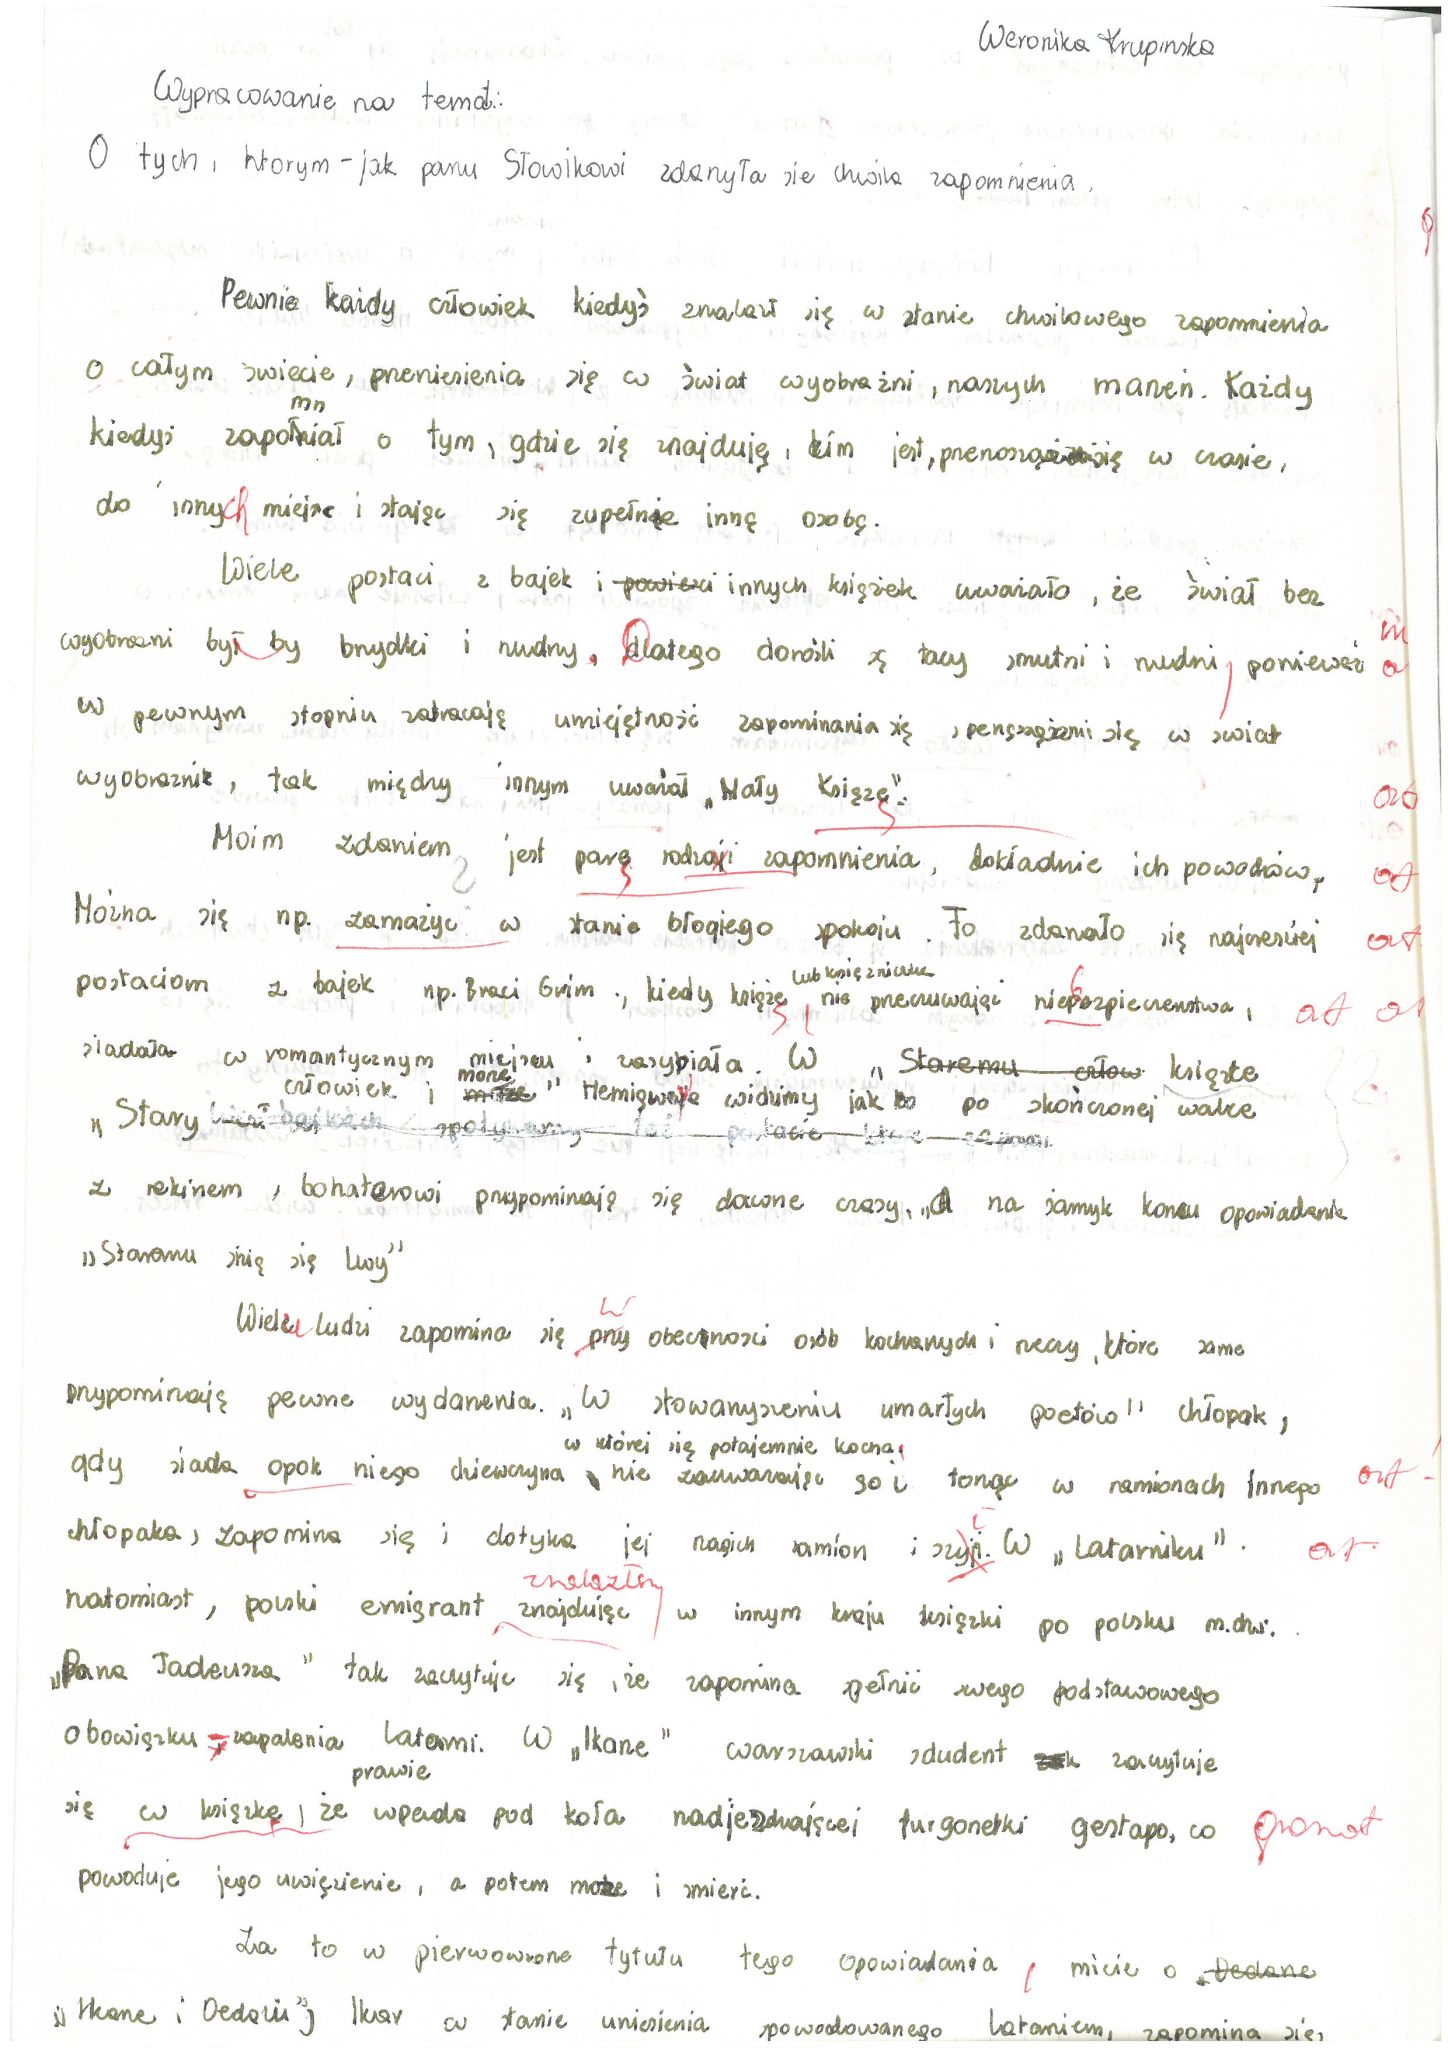 Weronika Krupinska
Wypracowanie na temat:
O tych, ktorym - jak panu Słowikowi zdarzyła sie chwila zapomnienia.
Pewnie każdy człowiek kiedyś znalazł się w stanie chwilowego zapomnienia
o całym świecie, przeniesienia się w świat wyobraźni, naszych marzeń. Każdy
mn
kiedyś zapomniał o tym, gdzie się znajduję, kim jest, przenosząc się w czasie,
do innych miejsc i stając się zupełnie inną osobą.
Wiele postaci z bajek i powieści innych książek uważało, że świat bez
wyobraźni był by brzydki i nudny. Dlatego dorośli są tacy smutni i nudni, ponieważ
w pewnym stopniu zatracają umiejętność zapominania się, się w swiat
wyobraznie, tak między innym uważał „Mały Książe".
ort
Moim zdaniem jest parę rodzaji zapomnienia, dokładnie ich powodów,
ort
Można się np. zamażyc w stanie błogiego spokoju. To zdarzało się najczesciej
ort
lub księżniczka
postaciom z bajek np. Braci Grim., kiedy książe nie przeczuwając niebezpieczenstwa,
ort
siadała w romantycznym miejscu i zasypiała. W „Staremu człow książce
człowiek i morze
„Stary " Hemigwaya widzimy jak to po skończonej walce
z rekinem, bohaterowi przypominają się dawne czasy, „A na samyk koncu opowiadania
„Staremu śnią się lwy"
w
Wielu ludzi zapomina się przy obecnosci osób kochanych i rzeczy, które same
przypominają pewne wydarzenia. „W stowarzyszeniu umarłych poetów" chłopak,
w której się potajemnie kocha,
gdy siada opok niego dziewczyna nie zauwarając go i tonąc w ramionach innego
ort
chłopaka, zapomina się i dotyka jej nagich ramion i szyji. W „Latarniku".
ort
znalazłszy
natomiast, polski emigrant znajdując w innym kraju książki po polsku m.
„Pana Tadeusza" tak zaczytuje się, że zapomina spełnić swego podstawowego
obowiązku, zapalenia latarni. W „Ikarze" warszawski student zaczytuje
prawie
się w książkę, że wpada pod koła nadjezdzającej furgonetki gestapo, co
powoduje jego uwięzienie, a potem może i smierć.
Za to w pierwowzorze tytułu tego opowiadania, micie o „Dedarze
„Ikarze i Dedalu", Ikar w stanie uniesienia spowodowanego lataniem, zapomina się,